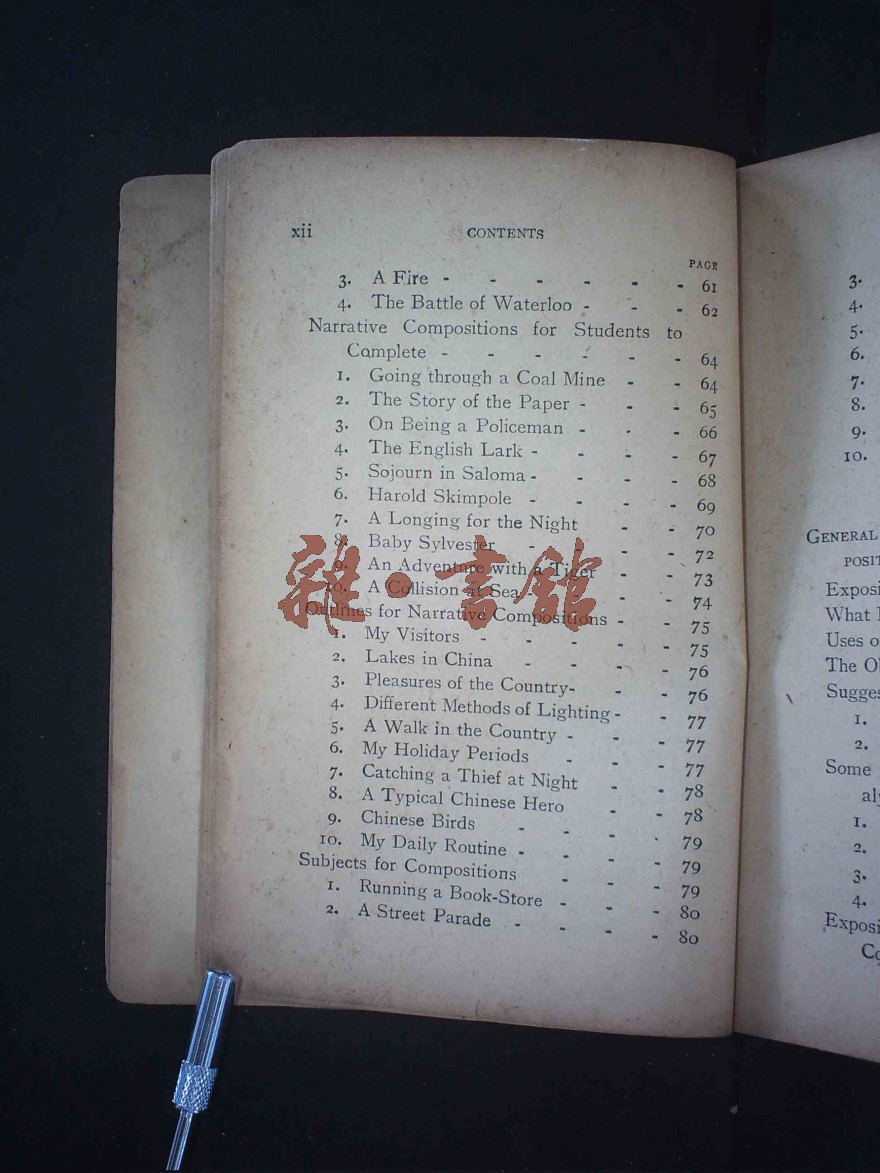 xii CONTENTS
PAGE
3. A Fire - - - - - - 61
4. The Battle of Waterloo - - - 62
Narrative Compositions for Students to
Complete - - - - - - 64
1. Going through a Coal Mine - - 64
2. The Story of the Paper - - - 65
3. On Being a Policeman - - - 66
4. The English Lark - - - - 67
5. Sojourn in Saloma - - - - 68
6. Harold Skimpole - - - - 69
7. A Longing for the Night - - 70
8. Baby Sylvester - - - - 72
9. An Adventure with a Tiger - - 73
10. A Collision at Sea - - - 74
Outlines for Narrative Compositions - - 75
1. My Visitors - - - - - 75
2. Lakes in China - - - - 76
3. Pleasures of the Country - - - 76
4. Different Methods of Lighting - - 77
5. A Walk in the Country - - - 77
6. My Holiday Periods - - - 77
7. Catching a Thief at Night - - 78
8. A Typical Chinese Hero - - 78
9. Chinese Birds - - - - 79
10. My Daily Routine - - - - 79
Subjects for Compositions - - - 79
1. Running a Book-Store - - - 80
2. A Street Parade - - - - 80
雜·書館
3.
4.
5.
6.
7.
8.
9.
10.
GENERAL
What
Uses
The
1.
2.
Some
1.
2.
3.
4.